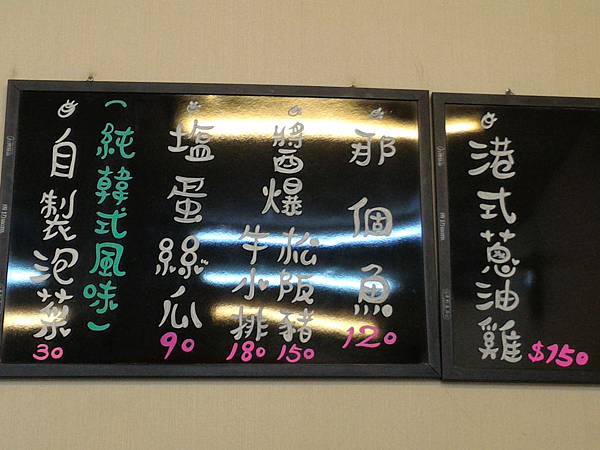 港式蔥油雞
$150
那個魚
120
醬爆松阪豬
150
牛小排
180
塩蛋絲瓜
90
(純韓式風味)
自製泡菜
30